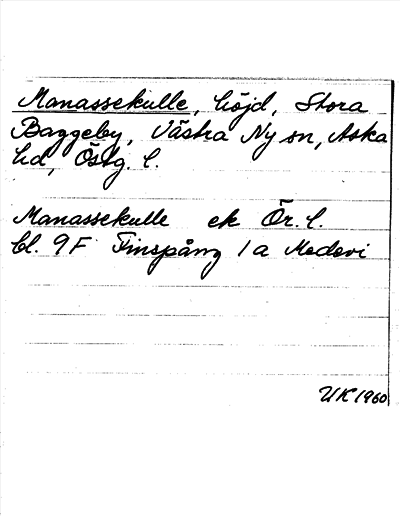 Manassekulle, höjd, Stora
Baggeby, Västra Ny sn, Aska
hd, Östg. l.
Manassekulle ek Ör. l.
bl. 9F Finspång 1a Medevi
UK 1960